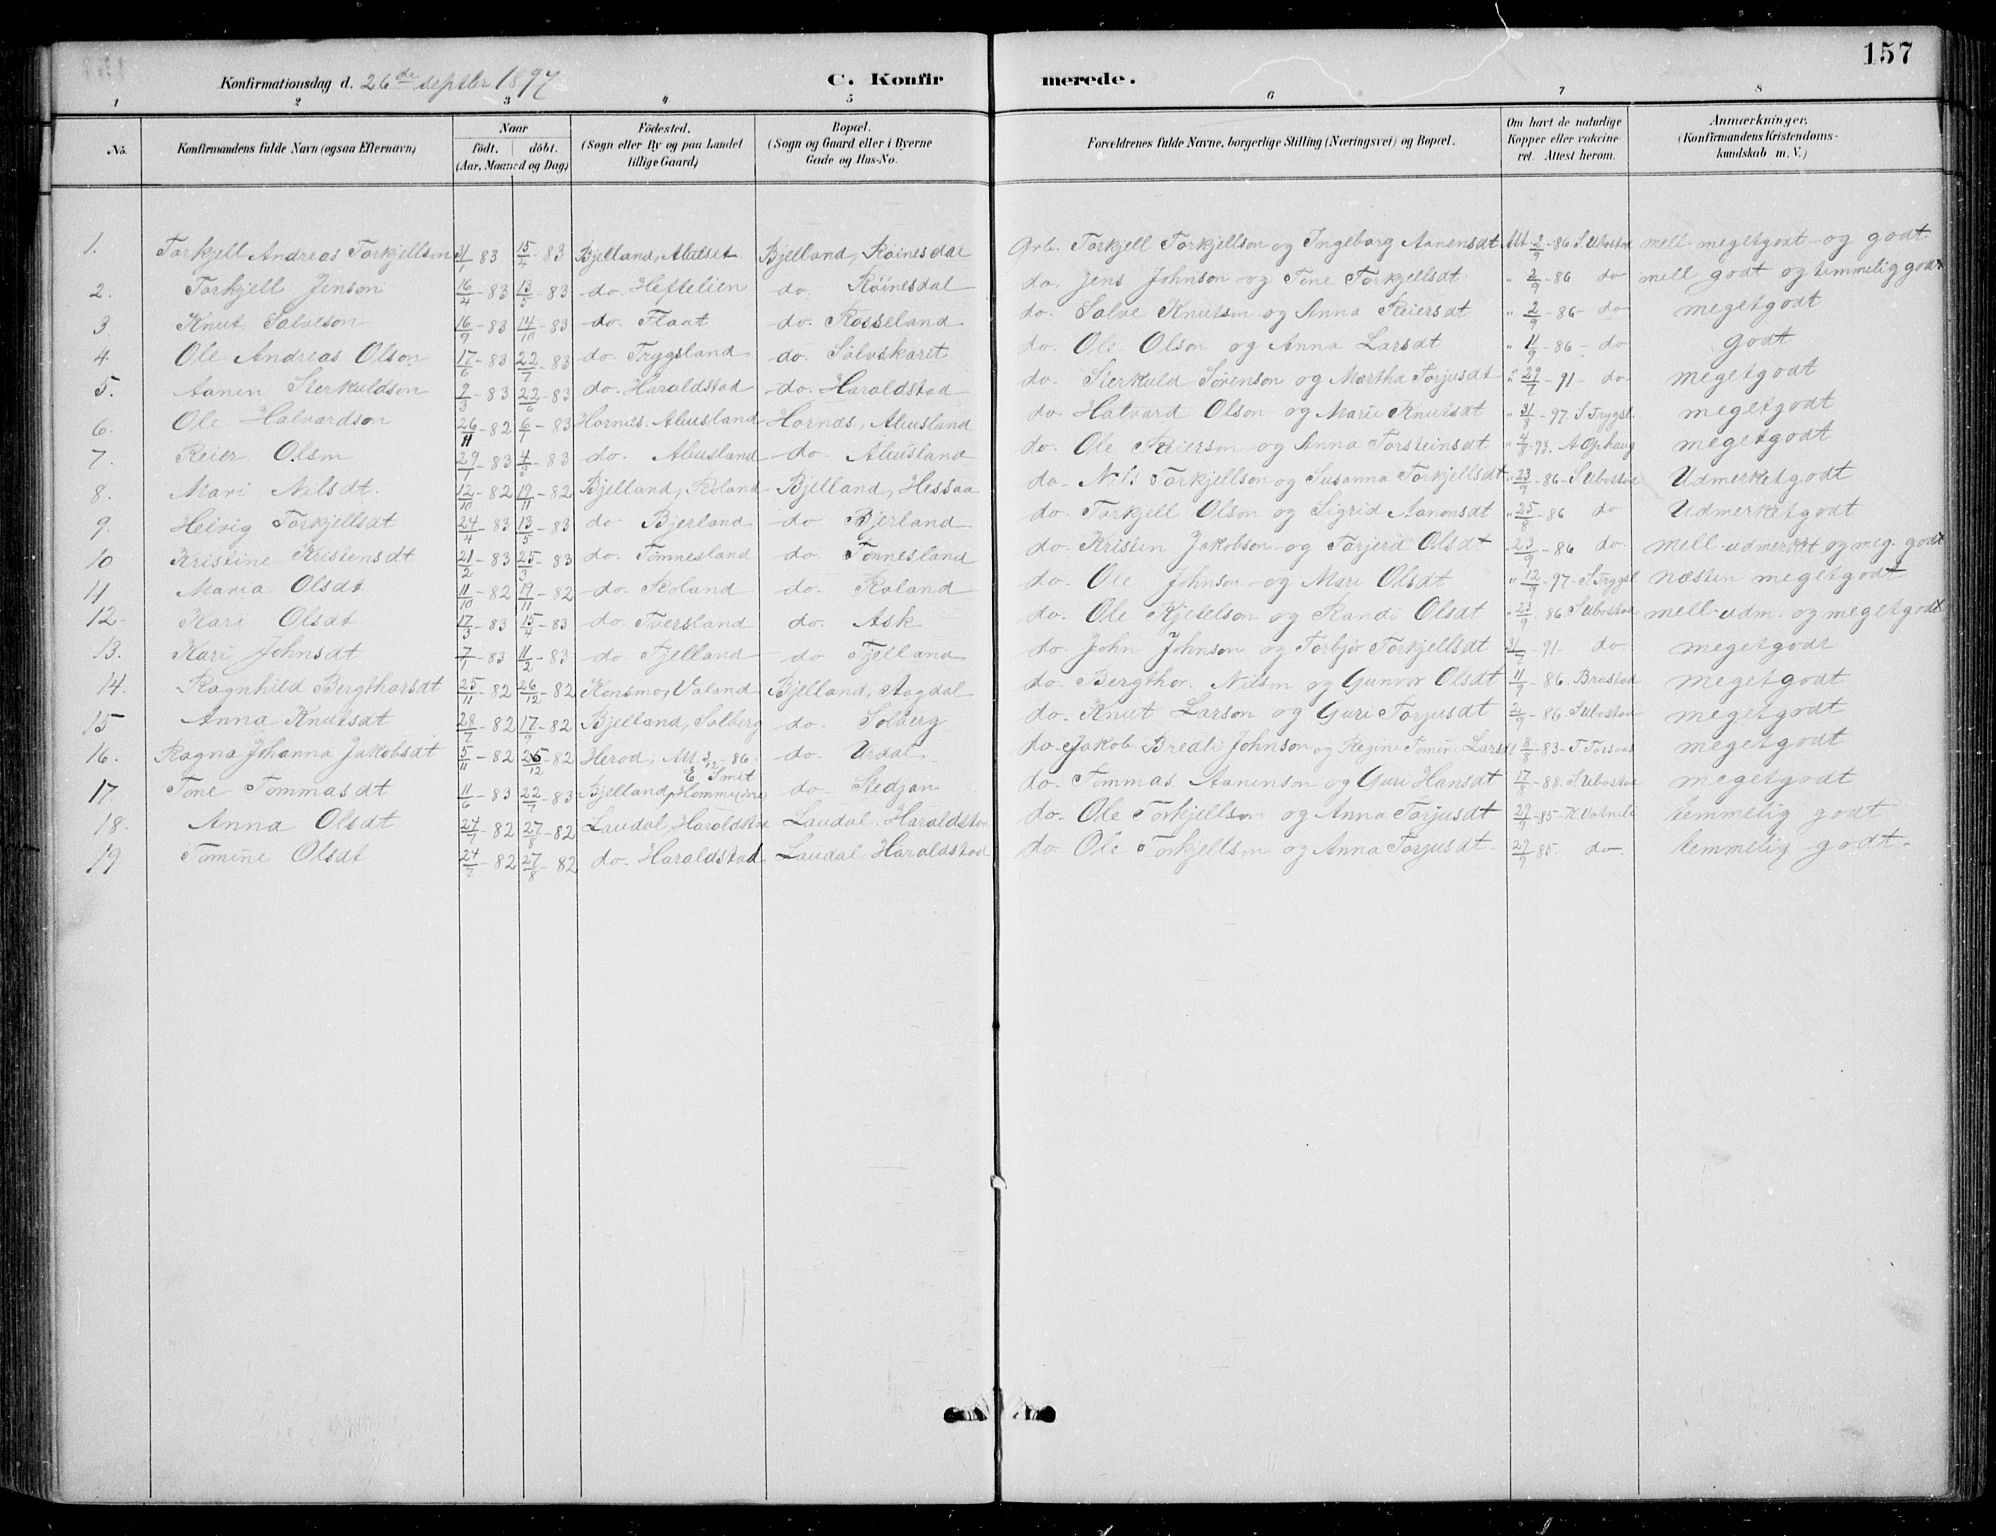 157
Konfirmationsdag d. 26de septbr 1897
C. Konfirmerede.
1 2 3 4 5 6 7 8
No. Konfirmandens fulde Navn (ogsaa Efternavn) Naar födt. döbt. (Aar, Maaned og Dag) Födested. (Sogn eller By og paa Landet tillige Gaard) Bopæl. (Sogn og Gaard eller i Byerne Gade og Hus-No. Forældrenes fulde Navne, borgerlige Stilling (Næringsvei) og Bopæl. Om havt de naturlige Kopper eller vakcineret. Attest herom. Anmærkninger. (Konfirmandens Kristendomskundskab m. V.)
1. Torkjell Andreas Torkjellson 31/1 83 15/4-83 Bjelland, Bjelland, Röinesdal Arb. Torkjell Torkjellson og Ingeborg Aanensdt Att 2/9-86 S Ubostad mell megetgodt og godt
2. Torkjell Jenson 16/4-83 13/5-83 do. Heftelien do. Röinesdal do. Jens Johnson og Tone Torkjellsdt " 2/9-86 do mell godt og temmelig godt
3 Knut Salveson 16/9-83 14/10-83 do. Flaat do. Rosseland do. Salve Knutson og Anna Reiersdt " 2/9-86- do megetgodt
4. Ole Andreas Olson 17/6-83 22/7-83 do. Trygsland do. Sölvskaret do. Ole Olson og Anna Larsdt " 11/9-86- do godt
5. Aanen Sterkuldson 2/3-83 22/6-83 do. Haraldstad do. Haraldstad do- Sterkuld Sörenson og Martha Torjusdt " 29/7-91- do- megetgodt
6. Ole Halvardson 26/11-82 6/1-83 Hornæs. Abusland Hornæs, Abusland do- Halvard Olson og Marie Knutsdt " 31/8-97 S Trygsl. megetgodt
7. Reier Olson 29/1-83 4/3-83 do. Abusland do- Abusland do. Ole Reierson og Anna Torsteinsdt " 4/8-93. A Ophaug megetgodt
8. Mari Nilsdt. 12/10-82 19/11-82 Bjelland, Roland Bjelland, Hessaa do- Nils Torkjellson og Susanna Torkjellsdt " 23/9-86- S Ubostad Udmerketgodt
9. Helvig Torkjellsdt 24/4-83 13/5-83 do Bjerland do Bjerland do. Torkjell Olson og Sigrid Aanonsdt " 25/8-86 do Udmerketgodt
10 Kristine Kristensdt 21/2-83 25/3-83 do. Tönnesland do. Tönnesland do- Kristen Jakobson og Torjerd Olsdt " 23/9-86 do. mell. udmerket og meg. godt
11 Maria Olsdt 11/10-82 19/11-82 do. Roland do. Roland do- Ole Johnson og Mari Olsdt " 12/9-97- S Trygsl næsten megetgodt
12- Kari Olsdt 17/3-83 15/4-83 do. Tversland do. Ask do. Ole Kjetelson og Randi Olsdt " 23/9-86 S Ubostad mell. udm. og megetgodt
13. Kari Johnsdt 7/1-83 11/2-83 do Fjelland do Fjelland do. John Johnson og Torbjör Torkjellsdt 31/7-91- do. megetgodt
14. Ragnhild Bergthorsdt 25/11-82 26/12-82 Konsmo, Valand Bjelland, Aagdal do. Bergthor Nilson og Gunvor Olsdt " 11/9-86. Brustad megetgodt
15 Anna Knutsdt 28/7-82 17/9-82 Bjelland, Solberg do- Solberg do- Knut Larson og Guri Torjusdt " 2/9-86 S Ubostad megetgodt
16. Ragna Johanna Jakobsdt 5/11-82 26/12-82 Herod, do- Urdal. do- Jakob Bredli Johnson og Regine Tomine Larsd 8/8-83- megetgodt
E Smit
17. Tone Tommasdt 11/6-83 22/7-83 Bjelland, Homme do- Stedjan do- Tommas Aanenson og Guri Hansdt 17/8-88 S Ubostad megetgodt
18. Anna Olsdt 24/7-82 27/8-82 Laudal, Haraldstad Laudal. Haraldstad do- Ole Torkjellson og Anna Torjusdt 29/9-85- temmelig godt
19 Tomine Olsdt 24/7-82 27/8-82 do. Haraldstad Laudal Haraldstad do Ole Torkjellson og Anna Torjusdt- 29/9 85. do temmelig godt.